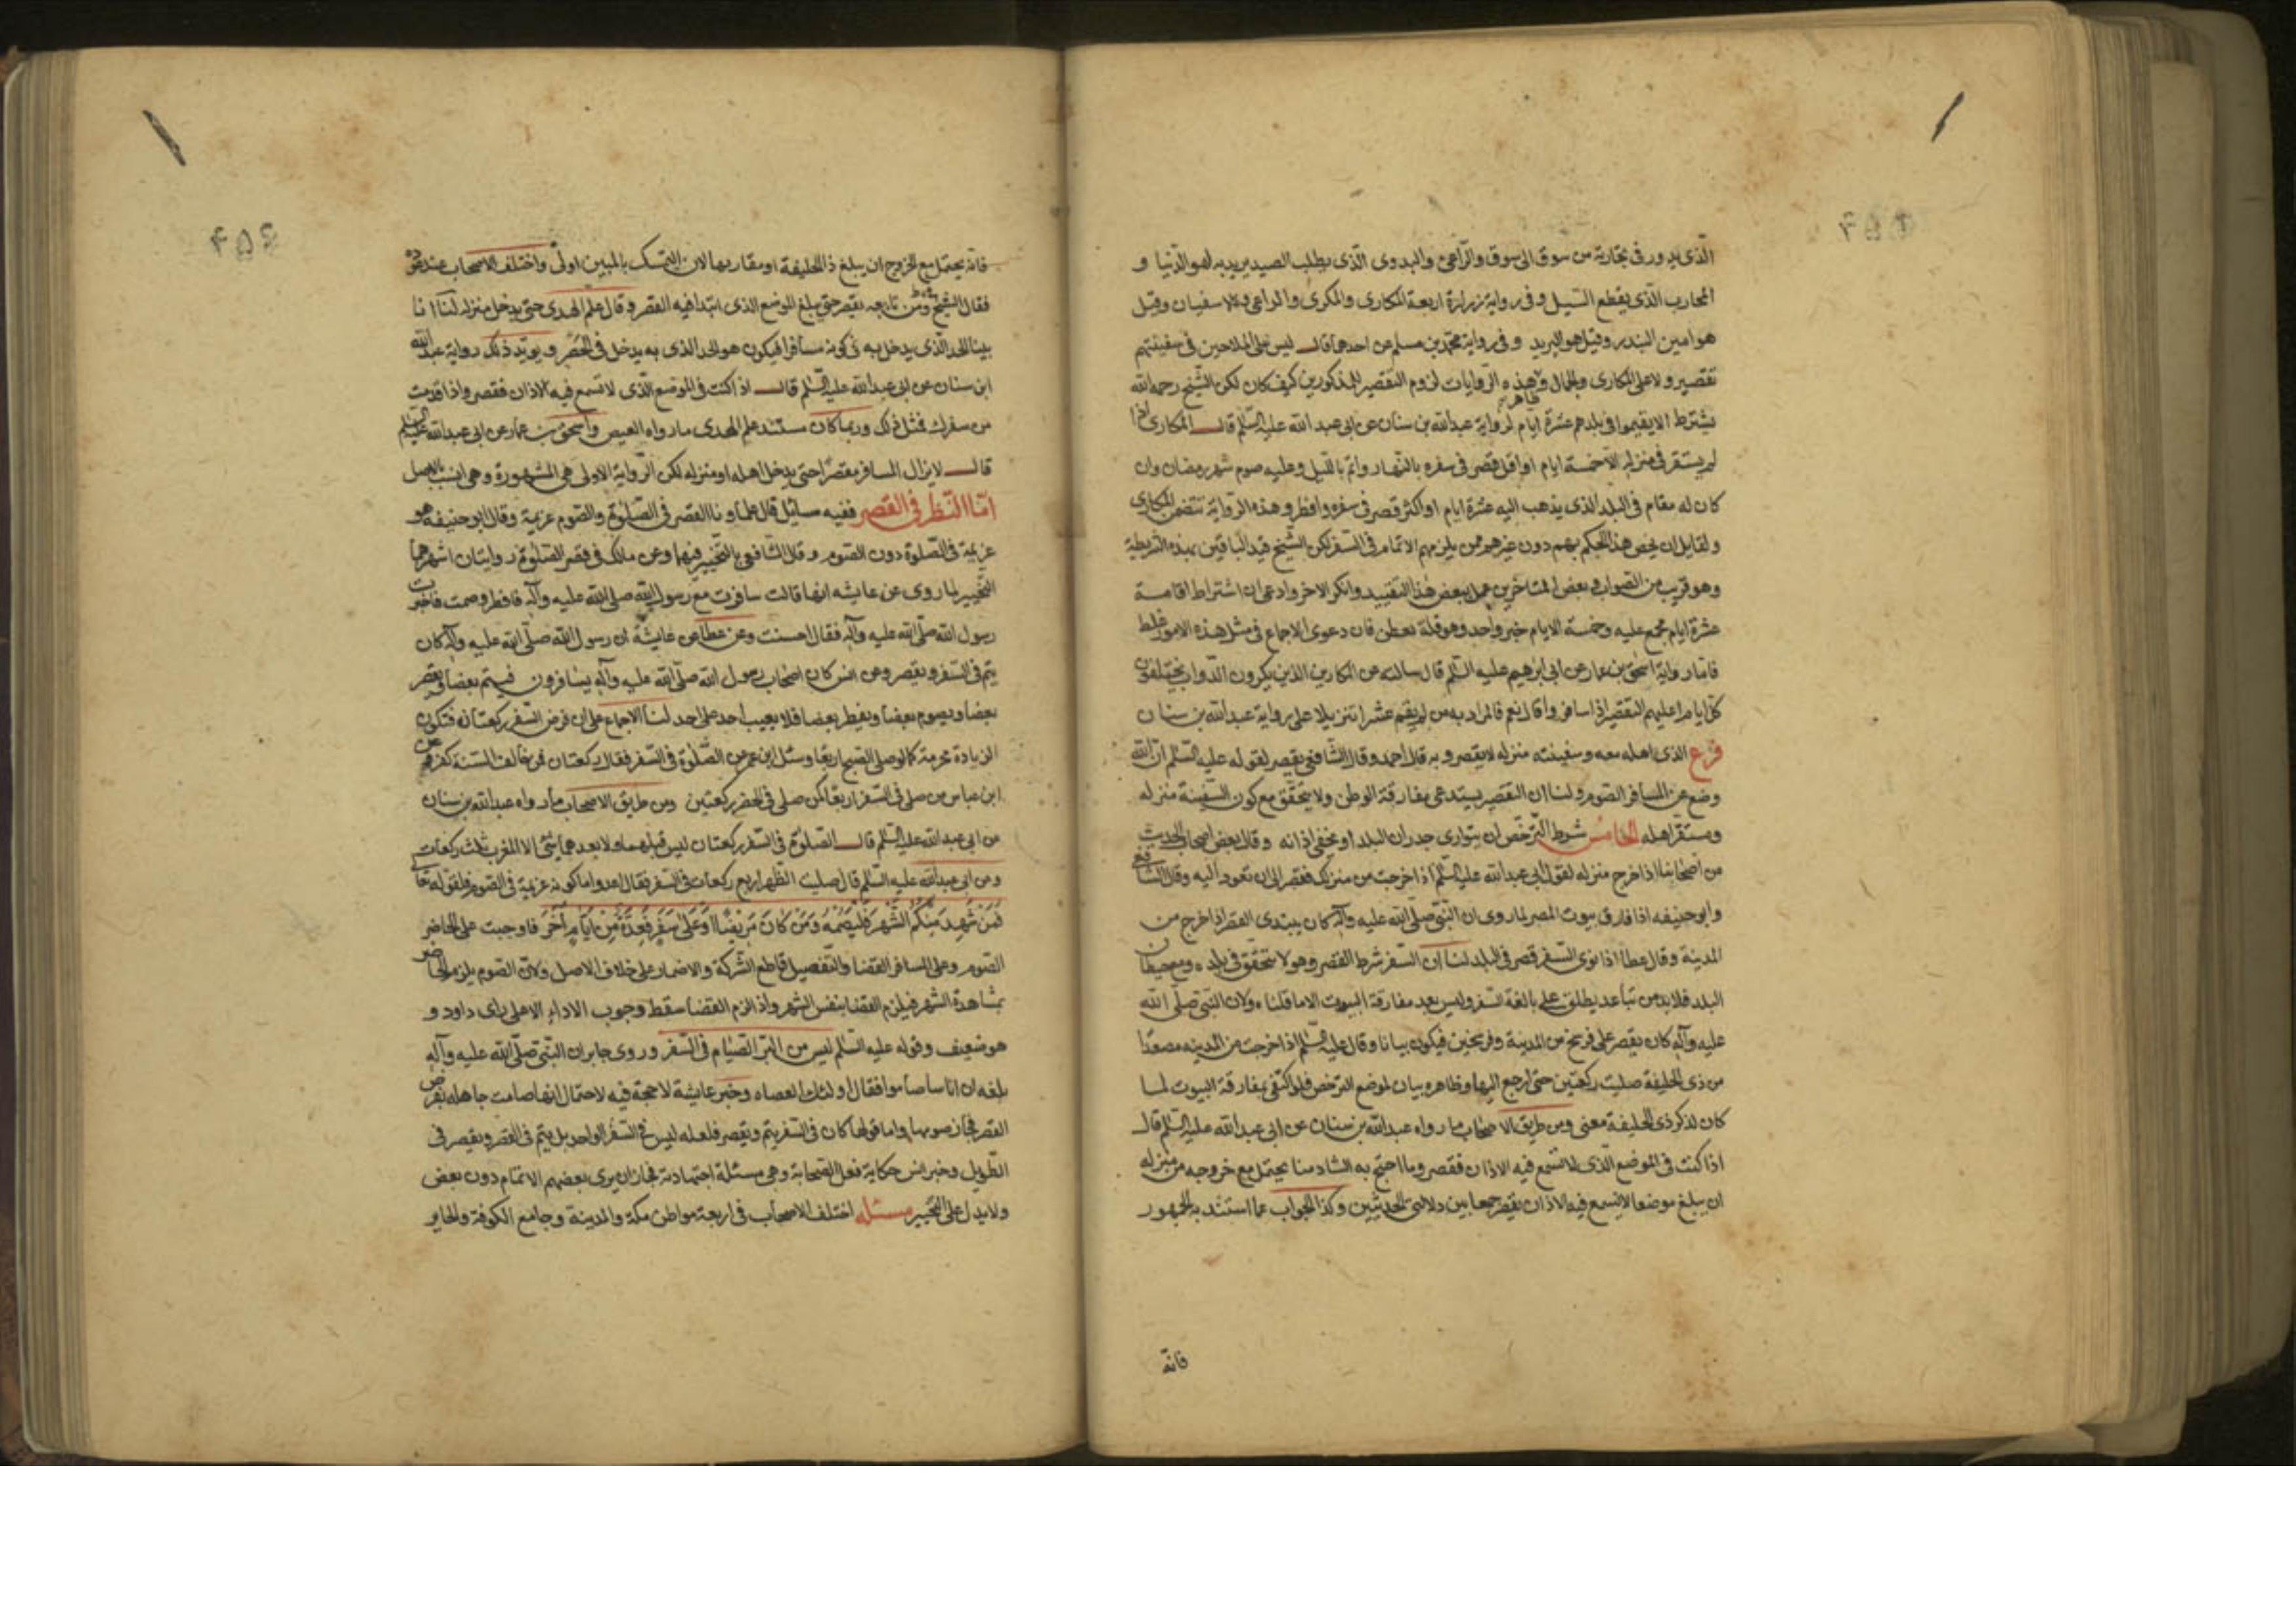 الذي يدور في تجارته من سوق الى سوق والراعي والبدوي الذي يطلب الصيد يريد به لهو الدنيا و
المحارب الذي يقطع السبيل وفي رواية زرارة اربعة المكاري والمكري والراعي والاسفيان وقيل
هو امين البندر وقيل هو البريد وفي رواية محمد بن مسلم عن احدهما قال ليس على الملاحين في سفينتهم
تقصير ولا على المكاري والجمال وهذه الروايات لزوم التقصير للمذكورين كيف كان لكن الشيخ رحمه الله
ظاهر
يشترط الا يقيموا في بلدهم عشرة ايام لرواية عبدالله بن سنان عن ابي عبد الله عليه السلم قال المكاري اذا
لم يستقر في منزله الا خمسة ايام او اقل قصر في سفره بالنهار واتم بالليل وعليه صوم شهر رمضان وان
كان له مقام في البلد الذي يذهب اليه عشرة ايام او اكثر قصر في سفره وافطر وهذه الرواية تتضمن المكاري
ولقايل ان يخص هذا الحكم بهم دون غيرهم ممن يلزمهم الاتمام في السفر لكن الشيخ قيد الباقين بهذه الشريطة
وهو قريب من الصواب وبعض المتاخرين عمل ببعض هذا التقييد وانكر الاخر وادعى ان اشتراط اقامة
عشرة ايام مجمع عليه وخمسة الايام خبر واحد وهو قلة تفطن فان دعوى الاجماع في مثل هذه الامور غلط
فاما رواية اسحق بن عمار عن ابي ابرهيم عليه السلم قال سالته عن المكارين الذين يكرون الدواب يختلفون
كل ايام اعليهم التقصير اذا سافروا قال نعم فالمراد به من لم يقم عشرا تنزيلا على رواية عبدالله بن سنان
فرع الذي اهله معه وسفينته منزله لا يقصر وبه قال احمد وقال الشافعي يقصر لقوله عليه السلم ان الله
وضع عن المسافر الصوم ولنا ان التقصير يستدعي مفارقة الوطن ولا يتحقق مع كون السفينة منزله
ومستقر اهله الخامس شرط الترخص ان يتوارى جدران البلد او يخفى اذانه وقال بعض اصحاب الحديث
من اصحابنا اذا خرج منزله لقول ابي عبدالله عليه السلم اذا خرجت من منزلك فقصر الى ان تعود اليه وقال الشافعي
وابو حنيفه اذا فارق بيوت المصر لما روى ان النبي صلى الله عليه وآله كان يبتدى القصر اذا خرج من
المدينة وقال عطا اذا نوى السفر قصر في البلد لنا ان السفر شرط القصر وهو لا يتحقق في بلده ومع حيطان
البلد فلا بد من تباعد يطلق على بالغة السفر وليس بعد مفارقة البيوت الا ما قلناه ولان النبي صلى الله
عليه وآله كان يقصر على فرسخ من المدينة وفرسخين فيكون بيانا وقال عليه السلم اذا خرجت من المدينه مصعدا
من ذي الحليفة صليت ركعتين حتى ارجع اليها وظاهره بيان لموضع الترخص فلو اكتفى بمفارقة البيوت لما
كان لذكر ذي الحليفة معنى ومن طريق الاصحاب ما رواه عبدالله بن سنان عن ابي عبدالله عليه السلم قال
اذا كنت في الموضع الذي لا تسمع فيه الاذان فقصر وما احتج به الشاذ منا يحتمل مع خروجه من منزله
ان يبلغ موضعا لا يسمع فيه الاذان يقصر جمعا بين دلالتي الحديثين وكذا الجواب عما استند به الجمهور
فانه
٤٥٤
فانه يحتمل مع الخروج ان يبلغ ذا الحليفة او مقاربها لان التمسك بالمبين اولى واختلف الاصحاب عند عوده
فقال الشيخ ومن تابعه يقصر حتى يبلغ الموضع الذي ابتدا فيه القصر وقال علم الهدى حتى يدخل منزله لنا انا
بينا الحد الذي يدخل به في كونه مسافرا فيكون هو الحد الذي به يدخل في الحضر ويويد ذلك رواية عبدالله
ابن سنان عن ابي عبدالله عليه السلم قال اذا كنت في الموضع الذي لا تسمع فيه الاذان فقصر واذا قدمت
من سفرك فمثل ذلك وربما كان مستند علم الهدى ما رواه العيص واسحق بن عمار عن ابي عبدالله عليه السلم
قال لا يزال المسافر مقصرا حتى يدخل اهله او منزله لكن الرواية الاولى هي المشهورة وهي انسب بالاصل
اما النظر في القصر ففيه مسائل قال علماونا القصر في الصلوة والصوم عزيمة وقال ابو حنيفه هو
عزيمة في الصلوة دون الصوم وقال الشافعي بالتخيير فيهما وعن مالك في قصر الصلوة روايتان اشهرهما
التخيير لما روى عن عايشه انها قالت سافرت مع رسول الله صلى الله عليه وآله فافطر وصمت فاخبرت
رسول الله صلى الله عليه وآله فقال احسنت وعن عطا عن عايشة ان رسول الله صلى الله عليه وآله كان
يتم في السفر ويقصر وعن انس كان اصحاب رسول الله صلى الله عليه وآله يسافرون فيتم بعضا ويقصر
بعضا ويصوم بعضا ويفطر بعضا فلا يعيب احد على احد لنا الاجماع على ان فرض السفر ركعتان فتكون
الزيادة محرمة كما لو صلى الصبح اربعا وسئل ابن عمر عن الصلوة في السفر فقال ركعتان فمن خالف السنة كفر وعن
ابن عباس من صلى في السفر اربعا كمن صلى في الحضر ركعتين ومن طريق الاصحاب ما رواه عبدالله بن سنان
عن ابي عبدالله عليه السلم قال الصلوة في السفر ركعتان ليس قبلهما ولا بعدهما شئ الا المغرب ثلث ركعات
وعن ابي عبدالله عليه السلم قال صليت الظهر اربع ركعات في السفر فقال اعد واما كونه عزيمة في الصوم فلقوله تعالى
فَمَنْ شَهِدَ مِنْكُمُ الشَّهْرَ فَلْيَصُمْهُ وَمَنْ كَانَ مَرِيضًا اَوْ عَلَىٰ سَفَرٍ فَعِدَّةٌ مِنْ اَيَّامٍ اُخَرَ فاوجبت على الحاضر
الصوم وعلى المسافر القضا والتفصيل قاطع الشركة والاضمار على خلاف الاصل ولان الصوم يلزم الحاضر
بمشاهدة الشهر فيلزم القضا بنفس الشهر واذا لزم القضا سقط وجوب الاداء الا على راى داود و
هو ضعيف وقوله عليه السلم ليس من البر الصيام في السفر وروى جابر ان النبي صلى الله عليه وآله
بلغه ان اناسا صاموا فقال اولئك العصاه وخبر عايشة لا حجة فيه لاحتمال انها صامت جاهله بفرض
القصر فجاز صومها واما قولها كان في السفر يتم ويقصر فلعله ليس في السفر الواحد بل يتم في القصر ويقصر في
الطويل وخبر انس حكاية فعل الصحابة وهي مسئلة اجتهادية فجاز ان يرى بعضهم الاتمام دون بعض
ولا يدل على التخيير مسئله اختلف الاصحاب في اربعة مواطن مكة والمدينة وجامع الكوفة والحاير